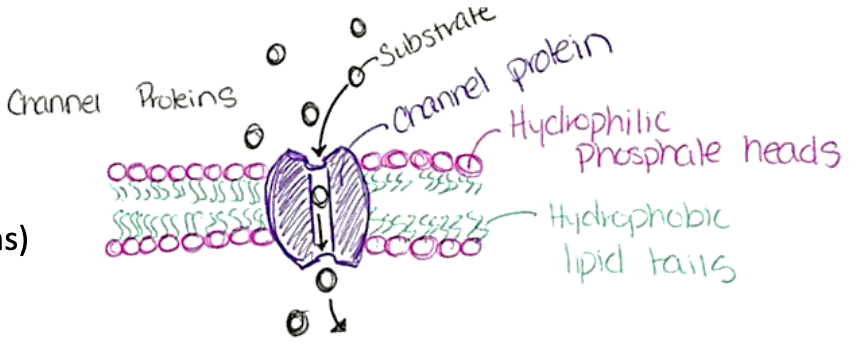 Channel Proteins
Substrate
Channel protein
Hydrophilic
Phosphate heads
Hydrophobic
lipid tails
ns)